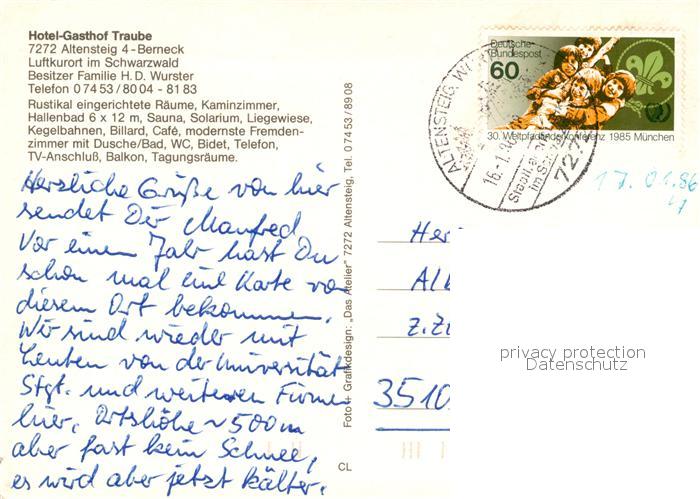 Hotel-Gasthof Traube
7272 Altensteig 4-Berneck
Luftkurort im Schwarzwald
Besitzer Familie H. D. Wurster
Telefon 0 74 53 / 80 04 - 81 83
Rustikal eingerichtete Räume, Kaminzimmer,
Hallenbad 6 x 12 m, Sauna, Solarium, Liegewiese,
Kegelbahnen, Billard, Café, modernste Fremden-
zimmer mit Dusche/Bad, WC, Bidet, Telefon,
TV-Anschluß, Balkon, Tagungsräume.
Herzliche Grüße von hier
sendet Dir Manfred
Vor einem Jahr hast Du
schon mal eine Karte von
diesem Ort bekommen.
Wir sind wieder mit
Leuten von der Universität
Stgt. und weiteren Firmen
hier. Ortshöhe ~ 500 m
aber fast kein Schnee,
es wird aber jetzt kälter.
Foto + Grafikdesign: „Das Atelier" 7272 Altensteig, Tel. 0 74 53 / 89 08
CL
Deutsche
Bundespost
60
30. Weltpfadfinderkonferenz 1985 München
ALTENSTEIG, WÜRTT
16.-1.86
Staatl. an
im S
7272
17. 01. 86
Her
Alb
z.Zt
3510
privacy protection
Datenschutz